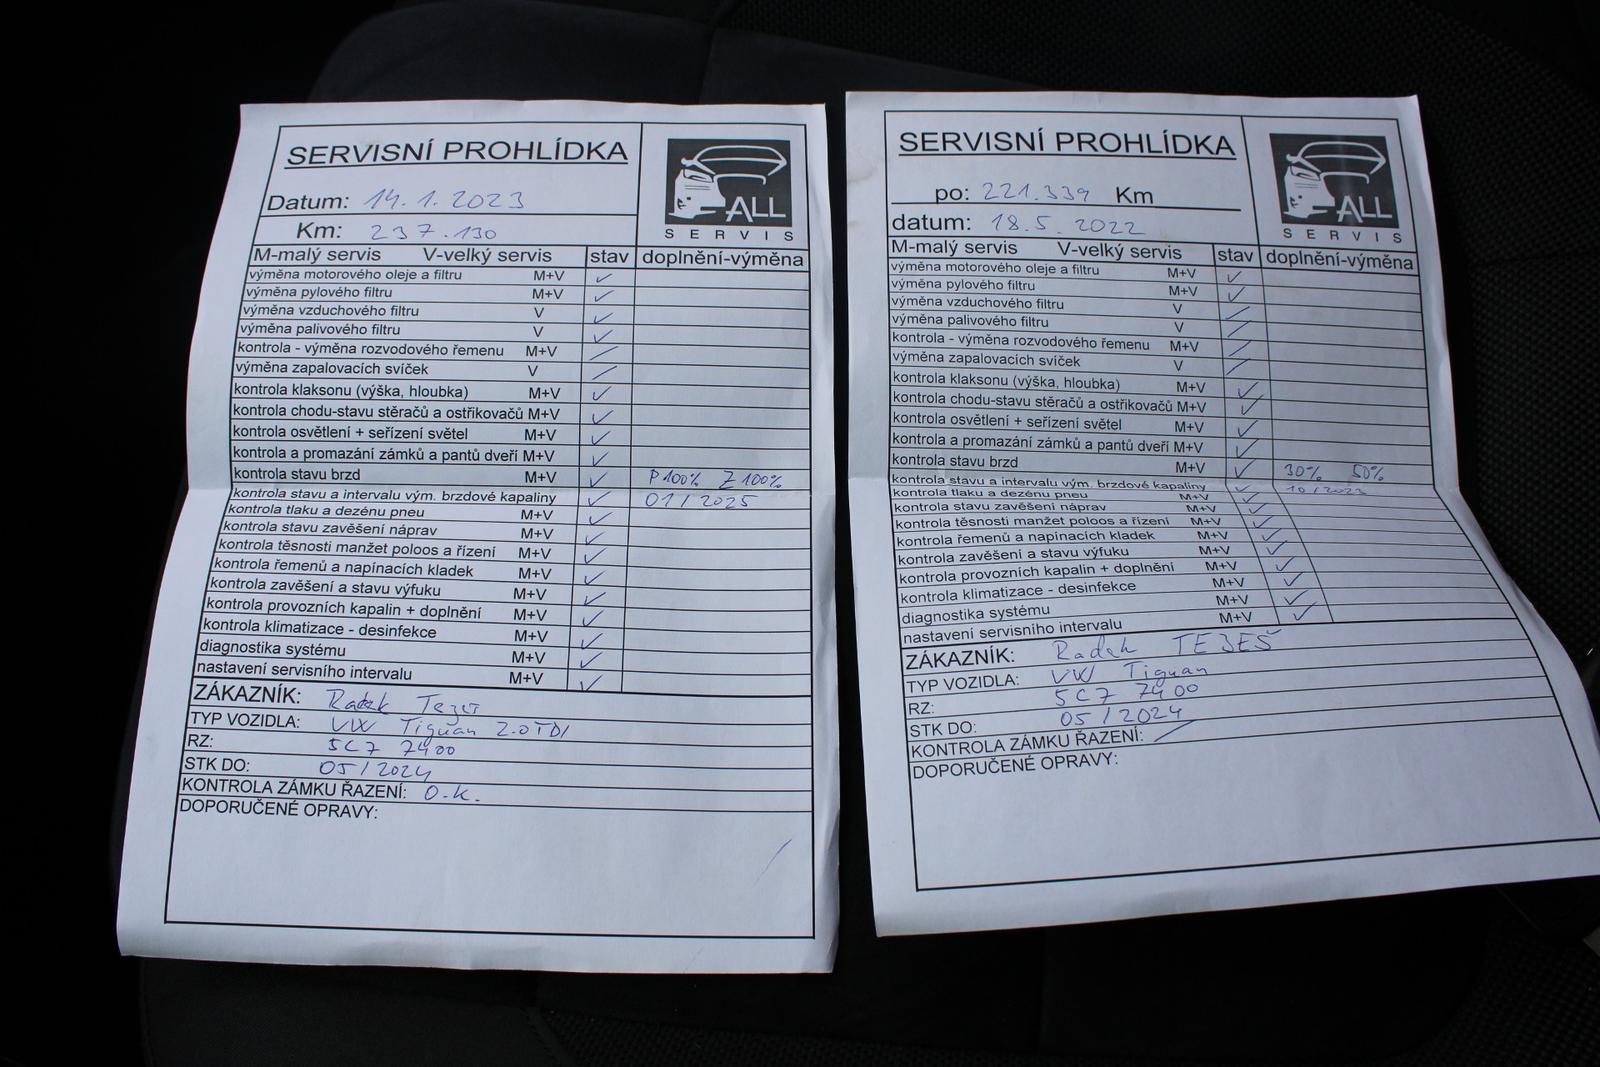 SERVISNÍ PROHLÍDKA
Datum: 14.1.2023
Km: 237.130
ALL
SERVIS
M-malý servis V-velký servis stav doplnění-výměna
výměna motorového oleje a filtru M+V ✓
výměna pylového filtru M+V ✓
výměna vzduchového filtru V ✓
výměna palivového filtru V ✓
kontrola - výměna rozvodového řemenu M+V /
výměna zapalovacích svíček V /
kontrola klaksonu (výška, hloubka) M+V ✓
kontrola chodu-stavu stěračů a ostřikovačů M+V ✓
kontrola osvětlení + seřízení světel M+V ✓
kontrola a promazání zámků a pantů dveří M+V ✓
kontrola stavu brzd M+V ✓ P 100% Z 100%
kontrola stavu a intervalu vým. brzdové kapaliny ✓ 01/2025
kontrola tlaku a dezénu pneu M+V ✓
kontrola stavu zavěšení náprav M+V ✓
kontrola těsnosti manžet poloos a řízení M+V ✓
kontrola řemenů a napínacích kladek M+V ✓
kontrola zavěšení a stavu výfuku M+V ✓
kontrola provozních kapalin + doplnění M+V ✓
kontrola klimatizace - desinfekce M+V ✓
diagnostika systému M+V ✓
nastavení servisního intervalu M+V ✓
ZÁKAZNÍK: Radek
TYP VOZIDLA: VW Tiguan 2.0TDI
RZ: 5C7 7400
STK DO: 05/2024
KONTROLA ZÁMKU ŘAZENÍ: O.K.
DOPORUČENÉ OPRAVY:
SERVISNÍ PROHLÍDKA
po: 221.339 Km
datum: 18.5.2022
ALL
SERVIS
M-malý servis V-velký servis stav doplnění-výměna
výměna motorového oleje a filtru M+V ✓
výměna pylového filtru M+V ✓
výměna vzduchového filtru V /
výměna palivového filtru V /
kontrola - výměna rozvodového řemenu M+V /
výměna zapalovacích svíček V /
kontrola klaksonu (výška, hloubka) M+V ✓
kontrola chodu-stavu stěračů a ostřikovačů M+V ✓
kontrola osvětlení + seřízení světel M+V ✓
kontrola a promazání zámků a pantů dveří M+V ✓
kontrola stavu brzd M+V ✓ 30% 50%
kontrola stavu a intervalu vým. brzdové kapaliny ✓
kontrola tlaku a dezénu pneu M+V ✓
kontrola stavu zavěšení náprav M+V ✓
kontrola těsnosti manžet poloos a řízení M+V ✓
kontrola řemenů a napínacích kladek M+V ✓
kontrola zavěšení a stavu výfuku M+V ✓
kontrola provozních kapalin + doplnění M+V ✓
kontrola klimatizace - desinfekce M+V ✓
diagnostika systému M+V ✓
nastavení servisního intervalu M+V ✓
ZÁKAZNÍK: Radek
TYP VOZIDLA: VW Tiguan
RZ: 5C7 7400
STK DO: 05/2024
KONTROLA ZÁMKU ŘAZENÍ: /
DOPORUČENÉ OPRAVY: